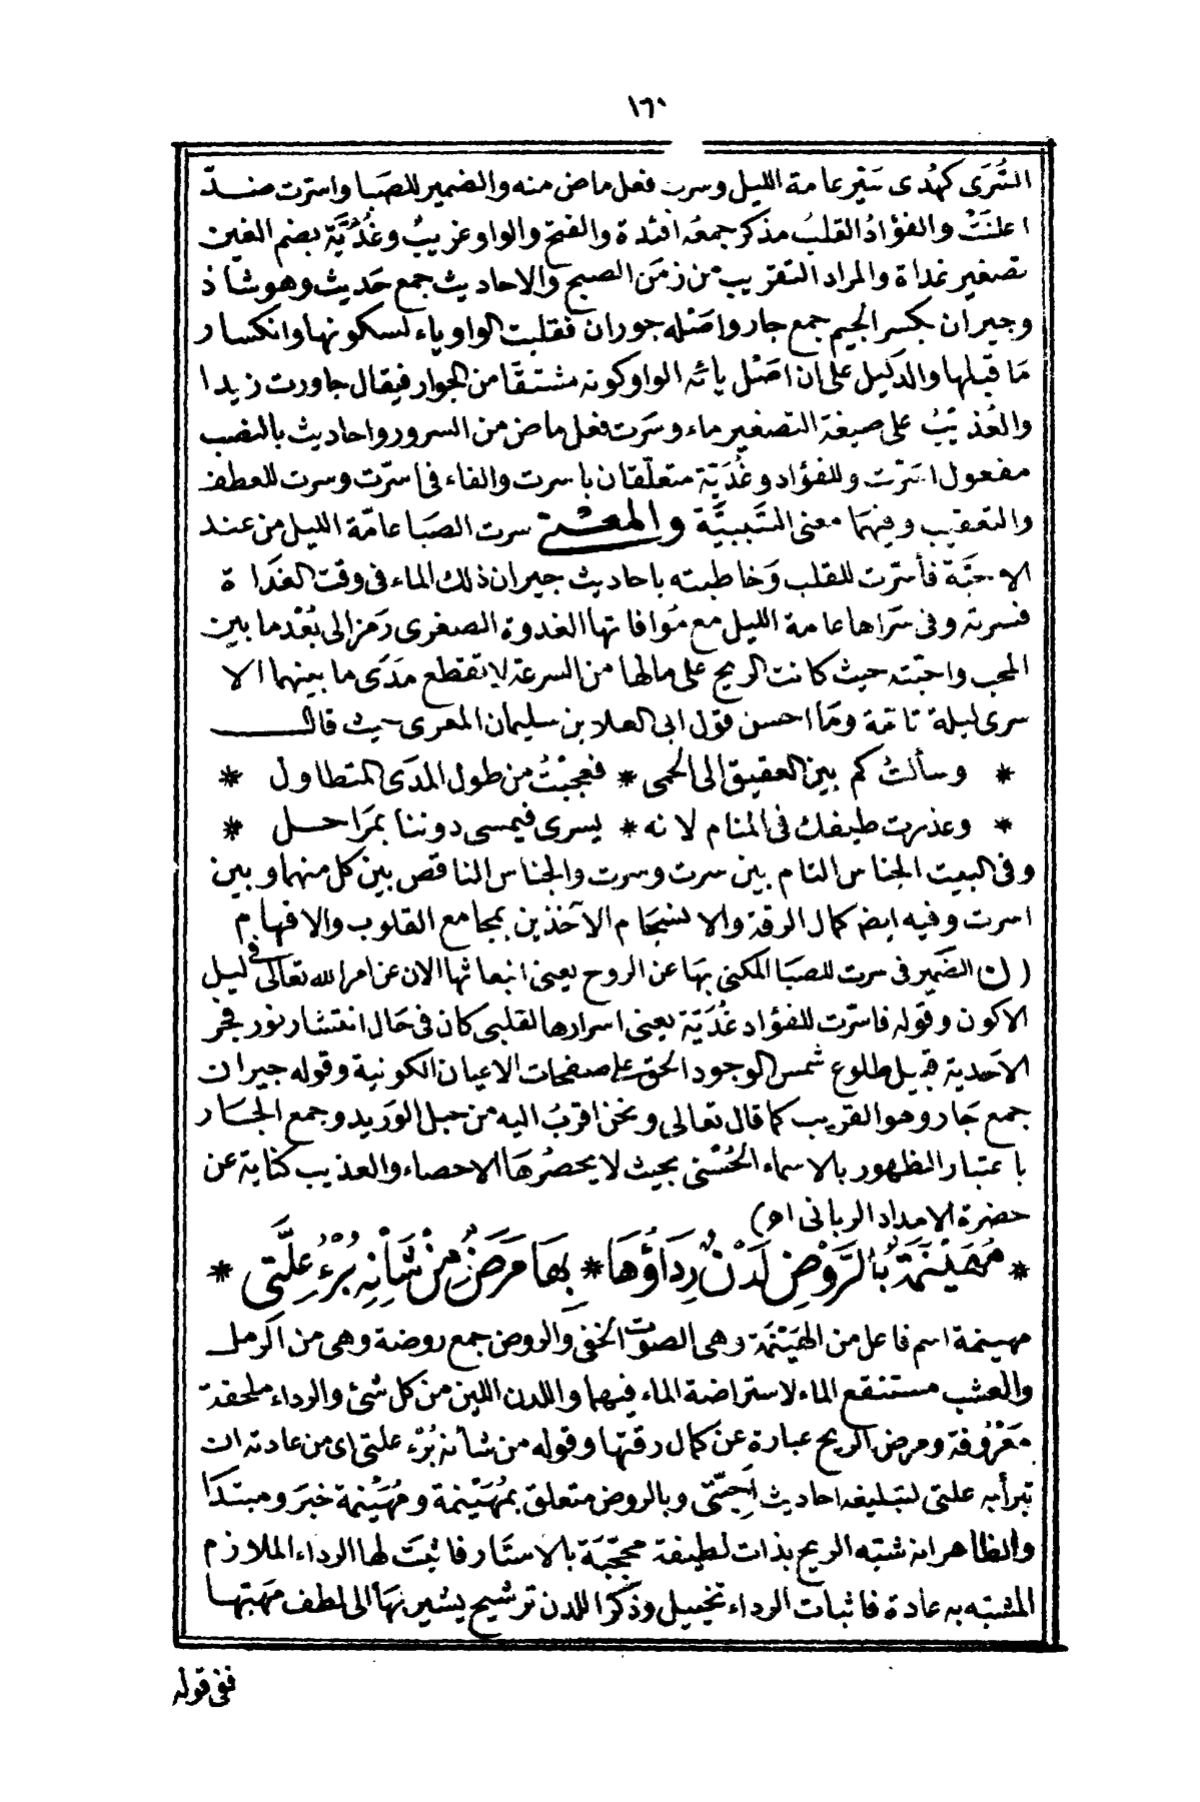 ١٦٠
السُّرَى كهُدى سَيْر عامة الليل وسرت فعل ماض منه والضمير للصَبا واسرت ضدّ
اعلنَتْ والفؤادُ القلبُ مذكر جمعه افئدة والفتح والواو غريبٌ وغُدَيَّة بضم الغين
تصغير غداة والمراد التقريب من زمَن الصبح والاحاديث جمع حَديث وهو شاذ
وجيران بكسر الجيم جمع جار واصْله جوران فقلبت الواو ياء لسكونها وانكسار
مَا قبلها والدليل على ان اصْل يائه الواو كونه مشتقًا من الجوار فيقال جاورت زيدا
والعُذَيْبُ على صيغة التصغير ماء وسَرت فعل ماض من السرور واحاديث بالنصب
مفعول اسَرّت وللفؤاد وغُدَيّة متعلّقان باسرت والفاء فى اسرّت وسرت للعطف
والتعقيب وفيهمَا معنى السَّببيَّة والمعنى سرت الصَبا عامّة الليل من عند
الاحبّة فأسرّت للقلب وَخاطبته باحاديث جيران ذلك الماء فى وقت الغَداة
فسرته وفى سَراها عامة الليل مع مُوافاتها الغدوة الصغرى رَمز الى بُعْد ما بين
المحب واحبّته حيث كانت الريح على مالها من السرعة لا تقطع مدَى ما بينهما الا
سرى ليلة تامّة ومَا احسن قول ابى العلا بن سليمان المعرى حيث قال
* وسألتُ كم بين العقيق الى الحمى * فعجبْتُ من طول المدَى المتطاول *
* وعذرت طيفك فى المنام لانه * يسرى فيمسى دوننا بمرَاحل *
وفى البيت الجناس التام بين سرت وسرت والجناس الناقص بين كل منهما وبين
اسرت وفيه ايضا كمال الرقة والانسجَام الآخذين بمجامع القلوب والافهام
(ن) الضمير فى سرت للصبَا المكنى بهَا عن الروح يعنى انبعاثها الان عن امر الله تعالى فى ليل
الاكون وقوله فاسرّت للفؤاد غُدَيّة يعنى اسرارها لقلبى كان فى حَال انتشار نور فجر
الاَحدية قبيل طلوع شمس الوجود الحق على صفحات الاعيان الكونية وقوله جيران
جمع جَار وهو القريب كما قال تعالى ونحن اقربُ اليه من حبل الوَريد وجمع الجَار
باعتبار الظهور بالاسماء الحُسْنى بحيث لا يحصرُهَا الاحصاء والعذيب كناية عن
حضرة الامداد الربانى اه)
* مُهَيْنَمَةٌ بُالرَّوْضِ لَدْنٌ رِدَاؤُهَا * بِهَا مَرَضٌ مِنْ شَأنِهِ بُرْءُ عِلَّتِى *
مهينمة اسم فاعل من الهَيْنَمَة وهى الصوْت الخفى والروض جمع روضة وهى من الرمل
والعشب مستنقع الماء لاستراضة الماء فيهما واللدن اللين من كل شئ والرداء ملحفة
مَعْرُوفة ومرض الريح عبارة عنْ كمال رقتها وقوله من شأنه بُرْء علتى اى من عادته ان
تبرأ به علتى لتبليغه احاديث اَحِبّتى وبالروض متعلق بمُهَيْنِمة ومُهَيْنمة خبَر ومبتدَا
والظاهر انه شبّه الريح بذات لطيفة محجّبَة بالاستار فاثبتَ لها الرداء الملازم
المشبّه به عادة فاثبات الرداء تخييل وذكر اللدن ترشيح يشير بهَا الى لطف مهَبّهَا
ففى قوله